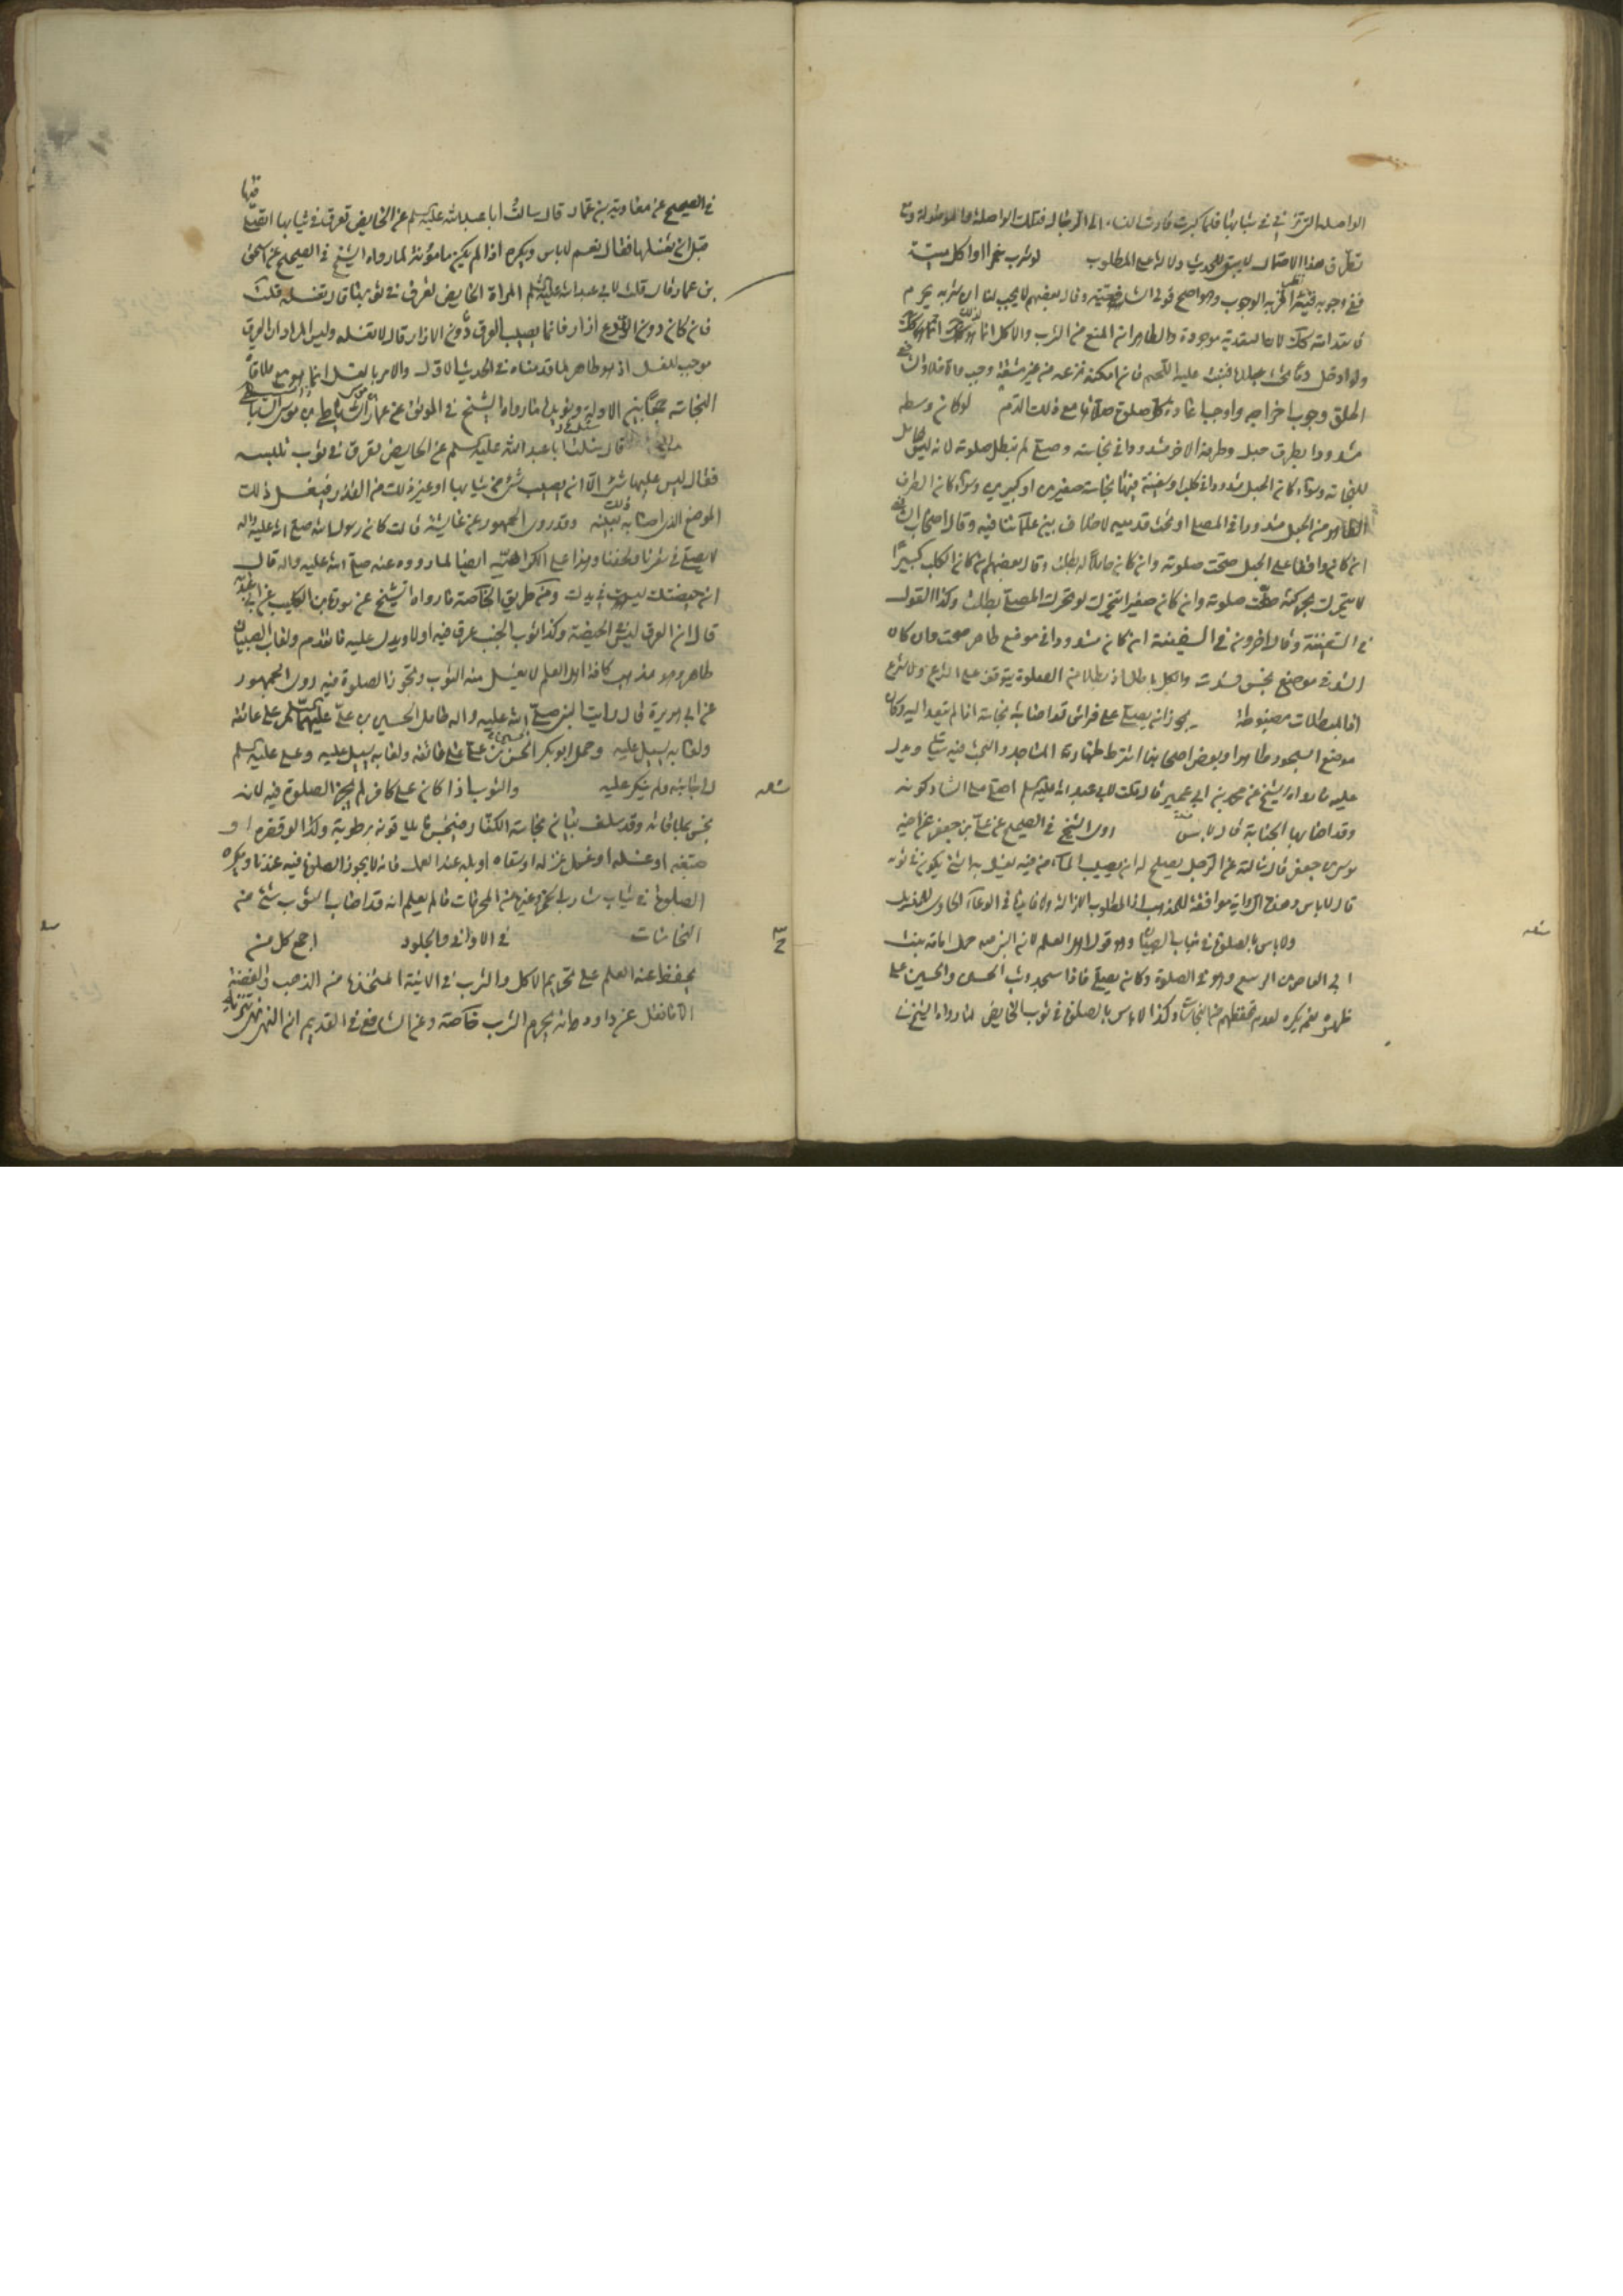 الواصلة التي تزني في شبابها فلما كبرت قادت النساء الى الرجال فتلك الواصلة والموصولة ومع
تطرق هذا الاحتمال لا يبقى للحديث دلالة على المطلوب لو شرب خمرا او اكل ميتة
ففي وجوب قيئه نظر اقربه الوجوب وهو اصح قولي الشافعية وقال بعضهم لا يجب لنا ان شربه محرم
فاستدامته كذلك لان المقدية موجودة والظاهر ان المنع من الشرب والاكل انما هو لذلك
ولو ادخل دما تحت جلده فنبت عليه اللحم فان امكنه نزعه من غير مشقة وجب
الحلق وجوب اخراجه واوجب اعادة كل صلوة صلاها مع ذلك الدم لو كان وسطه
مشدودا بطرف حبل وطرفه الاخر مشدودا في نجاسة وصلى لم تبطل صلوته لانه ليس بحامل
للنجاسة وسواء كان الحبل مشدودا في كلب او سفينة فيها نجاسة صغيرين او كبيرين وسواء كان الطرف
الطاهر من الحبل مشدودا في المصلي او تحت قدميه لا خلاف بين علمائنا فيه وقال اصحاب الشافعي
ان كان واقفا على الحبل صحت صلوته وان كان حاملا له بطلت وقال بعضهم ان كان الكلب كبيرا
لا يتحرك بحركته صحت صلوته وان كان صغيرا يتحرك لو تحرك المصلي بطلت وكذا القول
في السفينة وقال اخرون في السفينة ان كان مشدودا في موضع طاهر صحت وان كان
الشد في موضع نجس فسدت والكل باطل اذ بطلان الصلوة يتوقف على الشرع ولا شرع
اذ المبطلات مضبوطة يجوز ان يصلي على فراش قد اصابه نجاسة اذا لم تتعد اليه وكان
موضع السجود طاهرا وبعض اصحابنا اشترط طهارة المساجد والبحث فيه سيأتي ويدل
عليه ما رواه الشيخ عن محمد بن ابي عمير قال قلت لابي عبد الله عليه السلم اصلي على الشاذكونة
وقد اصابها الجنابة قال لا بأس روى الشيخ في الصحيح عن علي بن جعفر عن اخيه
موسى بن جعفر قال سالته عن الرجل يصلح له ان يصيب الماء من فيه يغسل به الشئ يكون في ثوبه
قال لا باس وهذه الرواية موافقة للمذهب اذ المطلوب الازالة ولا فارق في الوعاء الحاوي للمزيل
ولا باس بالصلوة في ثياب الصبيان وهو قول اهل العلم لان النبي ص حمل امامة بنت
ابي العاص بن الربيع وهو في الصلوة وكان يصلي فاذا سجد وثب الحسن والحسين على
ظهره نعم يكره لعدم تحفظهم من النجاسات وكذا لا باس بالصلوة في ثوب الحائض لما رواه الشيخ
في الصحيح عن معاوية بن عمار قال سالت ابا عبد الله عليه السلم عن الحايض تعرق في ثيابها اتصلي فيها
قبل ان تغسلها فقال نعم لا باس ويكره اذا لم يكن مامونة لما رواه الشيخ في الصحيح عن اسحق
بن عمار قال قلت لابي عبد الله عليه السلم المراة الحايض تعرق في ثوبها قال تغسله قلت
فان كان دون الدرع ازار فانما يصيب العرق دون الازار قال لا تغسله وليس المراد ان العرق
موجب للغسل اذ هو طاهر لما قدمناه في الحديث الاول والامر بالغسل انما هو مع ملاقاة
النجاسة جمعا بين الادلة ويؤيده ما رواه الشيخ في الموثق عن عمار بن موسى الساباطي
قال سئل ابا عبد الله عليه السلم عن الحايض تعرق في ثوب تلبسه
فقال ليس عليها شئ الا ان يصيب شئ من ثيابها او غير ذلك من القذر فيغسل ذلك
الموضع الذي اصابه بعينه وقد روى الجمهور عن عايشة قالت كان رسول الله صلى الله عليه واله
لا يصلي في شعرنا ولحفنا وهذا على الكراهية ايضا لما رووه عنه صلى الله عليه واله قال
ان حيضتك ليست في يدك ومن طريق الخاصة ما رواه الشيخ عن سورة بن كليب عن ابي عبد الله
قال ان العرق ليس من الحيضة وكذا ثوب الجنب عرق فيه او لا ويدل عليه ما تقدم ولعاب الصبيان
طاهر وهو مذهب كافة اهل العلم لا يغسل منه الثوب وتجوز الصلوة فيه روى الجمهور
عن ابي هريرة قال رايت النبي صلى الله عليه واله حامل الحسين بن علي عليهما السلم على عاتقه
ولعابه يسيل عليه وحمل ابو بكر الحسن بن علي على عاتقه ولعابه يسيل عليه وعلي عليه السلم
الى جانبه ولم ينكر عليه والثوب اذا كان على كافر لم يجز الصلوة فيه لانه
نجس بملاقاته وقد سلف بيان نجاسة الكفار فينجس ما يلاقونه برطوبة وكذا لو قصره او
صبغه او غسله او عمل غزله او سقاه او بله عند العمل فانه لا يجوز الصلوة فيه عندنا ويكره
الصلوة في ثياب شارب الخمر وغيرها من المحرمات ما لم يعلم انه قد اصاب الثوب شئ من
النجاسات في الاواني والجلود اجمع كل من
يحفظ عنه العلم على تحريم الاكل والشرب في الانية المتخذة من الذهب والفضة
الا ما نقل عن داوود انه يحرم الشرب خاصة وعن الشافعي في القديم ان النهي نهي تنزيه